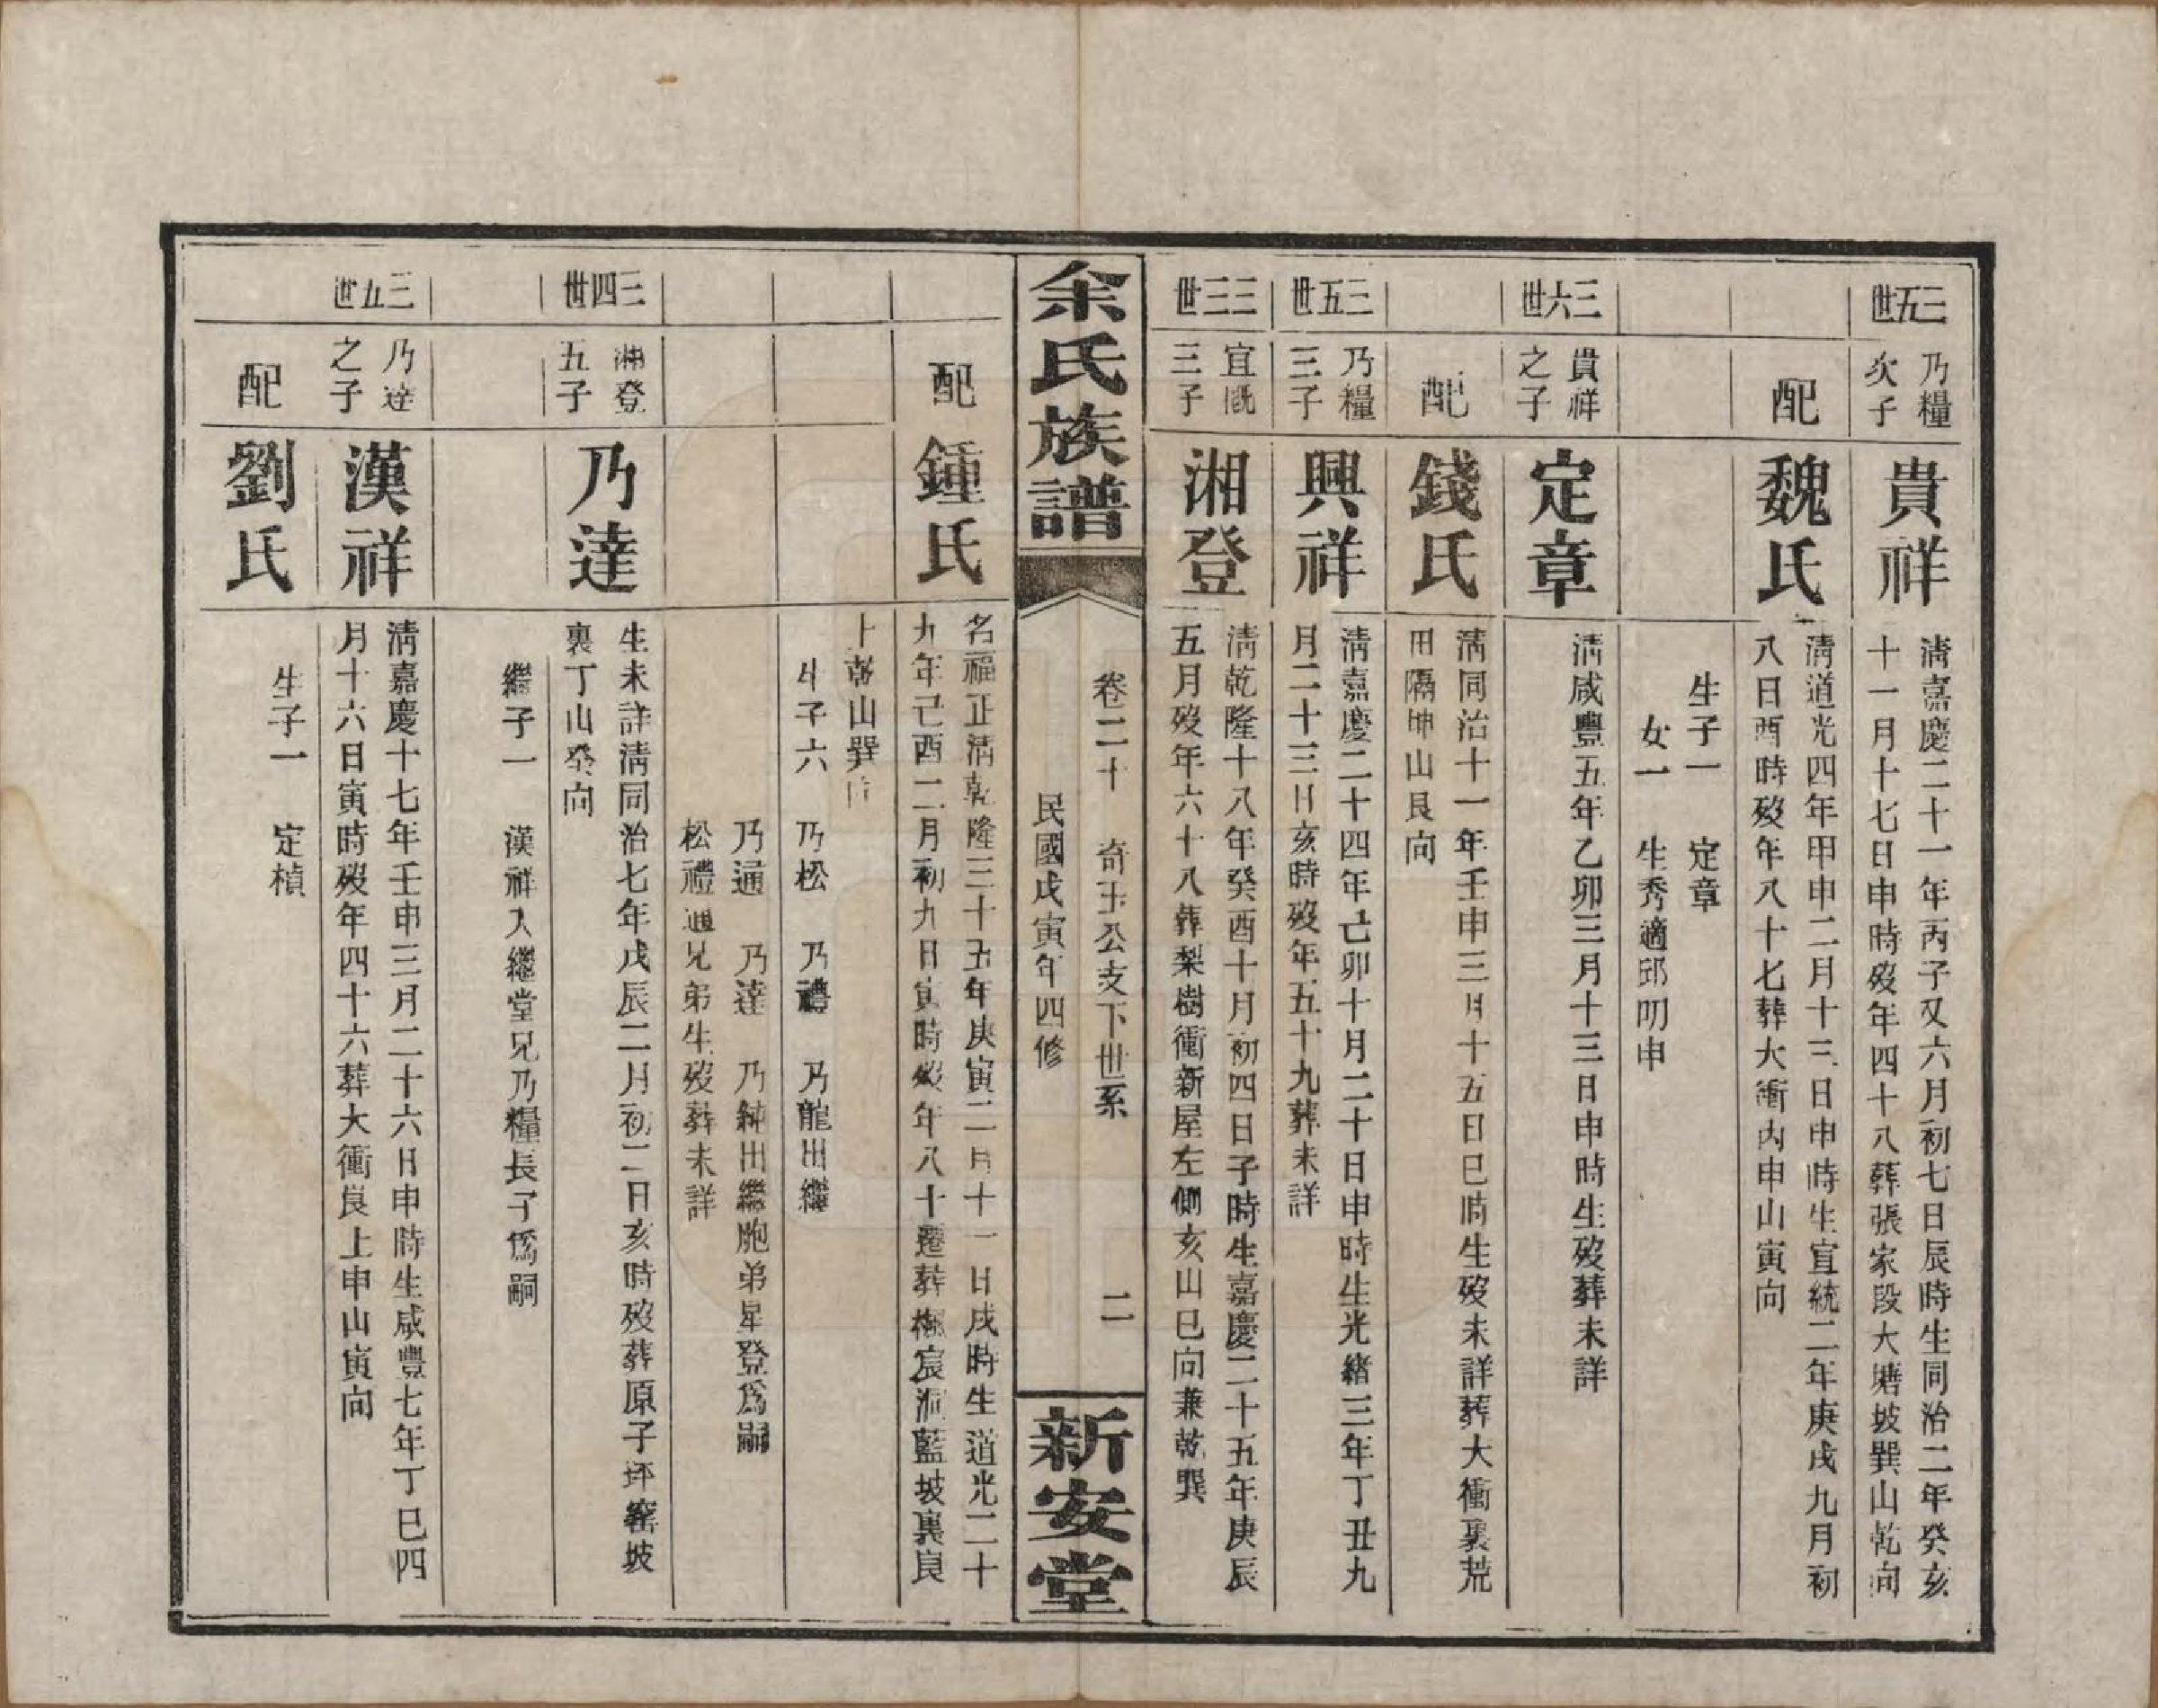 三五世
乃糧
次子
貴祥
清嘉慶二十一年丙子又六月初七日辰時生同治二年癸亥
十一月十七日申時歿年四十八葬張家段大塘坡巽山乾向
配
魏氏
清道光四年甲申二月十三日申時生宣統二年庚戌九月初
八日酉時歿年八十七葬大衝內申山寅向
生子一 定章
女一 生秀適邱明申
三六世
貴祥
之子
定章
清咸豐五年乙卯三月十三日申時生歿葬未詳
配
錢氏
清同治十一年壬申三月十五日巳時生歿未詳葬大衝裏荒
田隔坤山艮向
三五世
乃糧
三子
興祥
清嘉慶二十四年己卯十月二十日申時生光緒三年丁丑九
月二十三日亥時歿年五十九葬未詳
三三世
宜溉
三子
湘登
清乾隆十八年癸酉十月初四日子時生嘉慶二十五年庚辰
五月歿年六十八葬梨樹衝新屋左側亥山巳向兼乾巽
余氏族譜
卷二十 奇玉公支下世系 二
民國戊寅年四修
新安堂
配
鍾氏
名福正清乾隆三十五年庚寅二月十一日戌時生道光二十
九年己酉二月初九日寅時歿年八十遷葬楓宸洞藍坡裏良
上乾山巽向
生子六 乃松 乃禮 乃龍出繼
乃通 乃達 乃純出繼胞弟星登爲嗣
松禮通兄弟生歿葬未詳
三四世
湘登
五子
乃達
生未詳清同治七年戊辰二月初二日亥時歿葬原子坪窰坡
裏丁山癸向
繼子一 漢祥入繼堂兄乃糧長子爲嗣
三五世
乃達
之子
漢祥
清嘉慶十七年壬申三月二十六日申時生咸豐七年丁巳四
月十六日寅時歿年四十六葬大衝良上申山寅向
配
劉氏
生子一 定楨